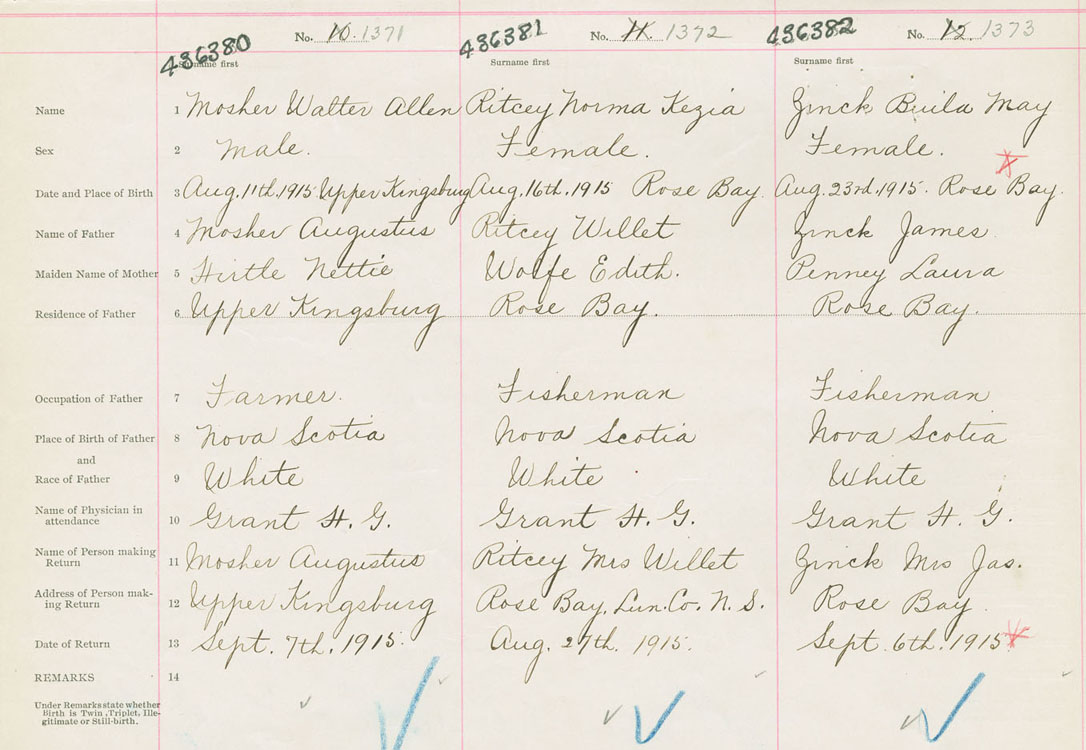 436380 No. 10. 1371 436381 No. 11. 1372 436382 No. 12. 1373
Surname first Surname first Surname first
Name 1 Mosher Walter Allen Ritcey Norma Kezia Zinck Beula May
Sex 2 Male. Female. Female.
Date and Place of Birth 3 Aug. 11th. 1915 Upper Kingsburg Aug. 16th. 1915 Rose Bay. Aug. 23rd. 1915. Rose Bay.
Name of Father 4 Mosher Augustus Ritcey Willet Zinck James
Maiden Name of Mother 5 Hirtle Nettie Wolfe Edith. Penney Laura
Residence of Father 6 Upper Kingsburg Rose Bay. Rose Bay.
Occupation of Father 7 Farmer. Fisherman Fisherman
Place of Birth of Father 8 Nova Scotia Nova Scotia Nova Scotia
and
Race of Father 9 White White White
Name of Physician in
attendance 10 Grant H. G. Grant H. G. Grant H. G.
Name of Person making
Return 11 Mosher Augustus Ritcey Mrs Willet Zinck Mrs Jas.
Address of Person mak-
ing Return 12 Upper Kingsburg Rose Bay, Lun. Co. N. S. Rose Bay
Date of Return 13 Sept. 7th. 1915. Aug. 27th. 1915. Sept. 6th. 1915.
REMARKS 14
Under Remarks state whether
Birth is Twin, Triplet, Ille-
gitimate or Still-birth.